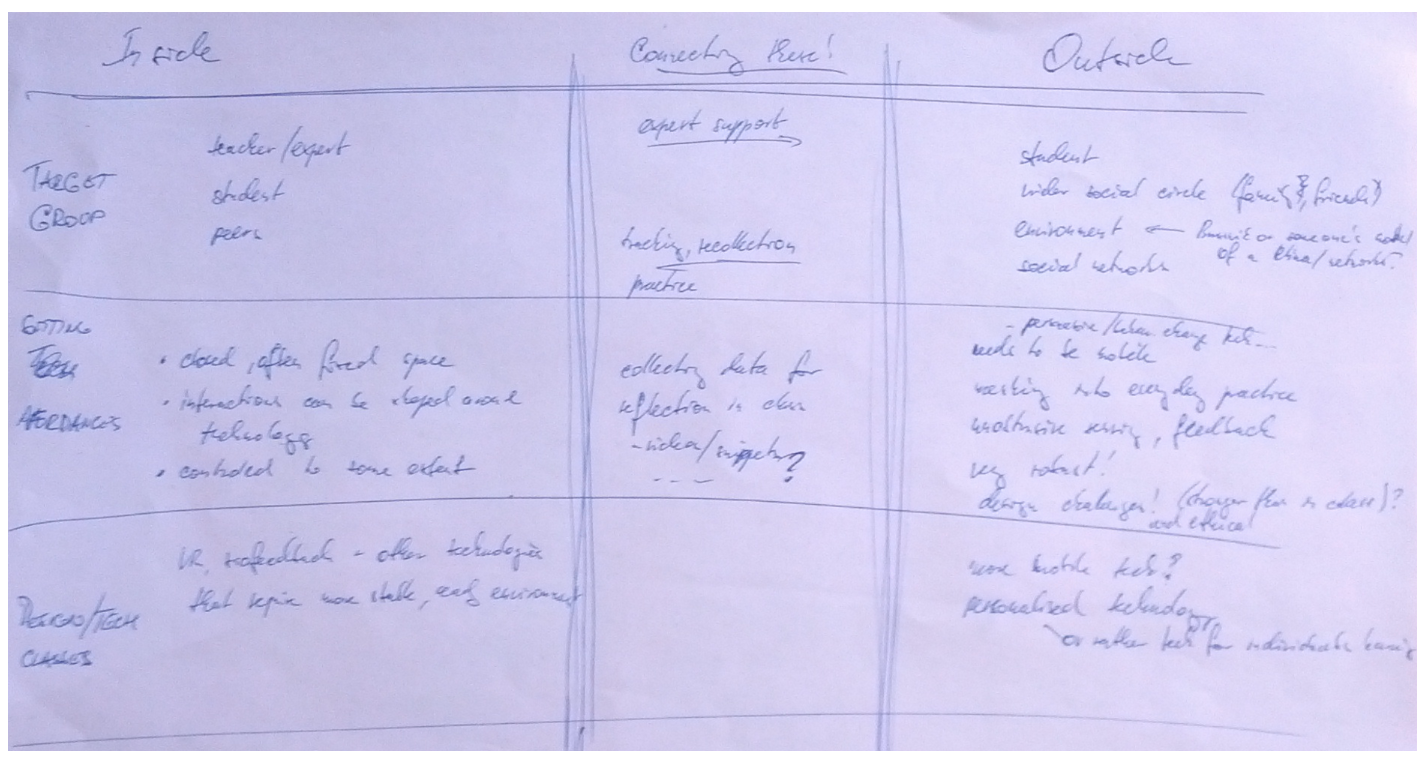 Inside
Connecting these!
Outside
TARGET
GROUP
teacher/expert
student
peers
expert support
tracking, recollection
practice
student
wider social circle (family, friends)
environment ←
of a
social networks
SETTING
AFFORDANCES
• closed, often fixed space
• interactions can be shaped around
technology
• controlled to some extent
collecting data for
reflection in class
- video/snippets?
- - -
- persuasive/behav. change tech...
needs to be mobile
working into everyday practice
unobtrusive sensing, feedback
very robust!
design challenges! (stronger than in class)?
and ethical
DESIGN/TECH
CLASSES
VR, biofeedback - other technologies
that require more stable, environment
more mobile tech?
personalised technology
or rather tech for individuals